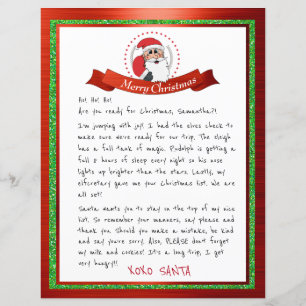 Merry Christmas
Ho! Ho! Ho!
Are you ready for Christmas, Samantha?!
I'm jumping with joy! I had the elves check to
make sure we're ready for our trip. The sleigh
has a full tank of magic. Rudolph is getting a
full 8 hours of sleep every night so his nose
lights up brighter than the stars. Lastly, my
elfcretary gave me your Christmas list. We are
all set!
Santa wants you to stay on the top of my nice
list. So remember your manners, say please and
thank you. Should you make a mistake, be kind
and say you're sorry. Also, PLEASE don't forget
my milk and cookies! It's a long trip, I get
very hungry!!
XOXO SANTA